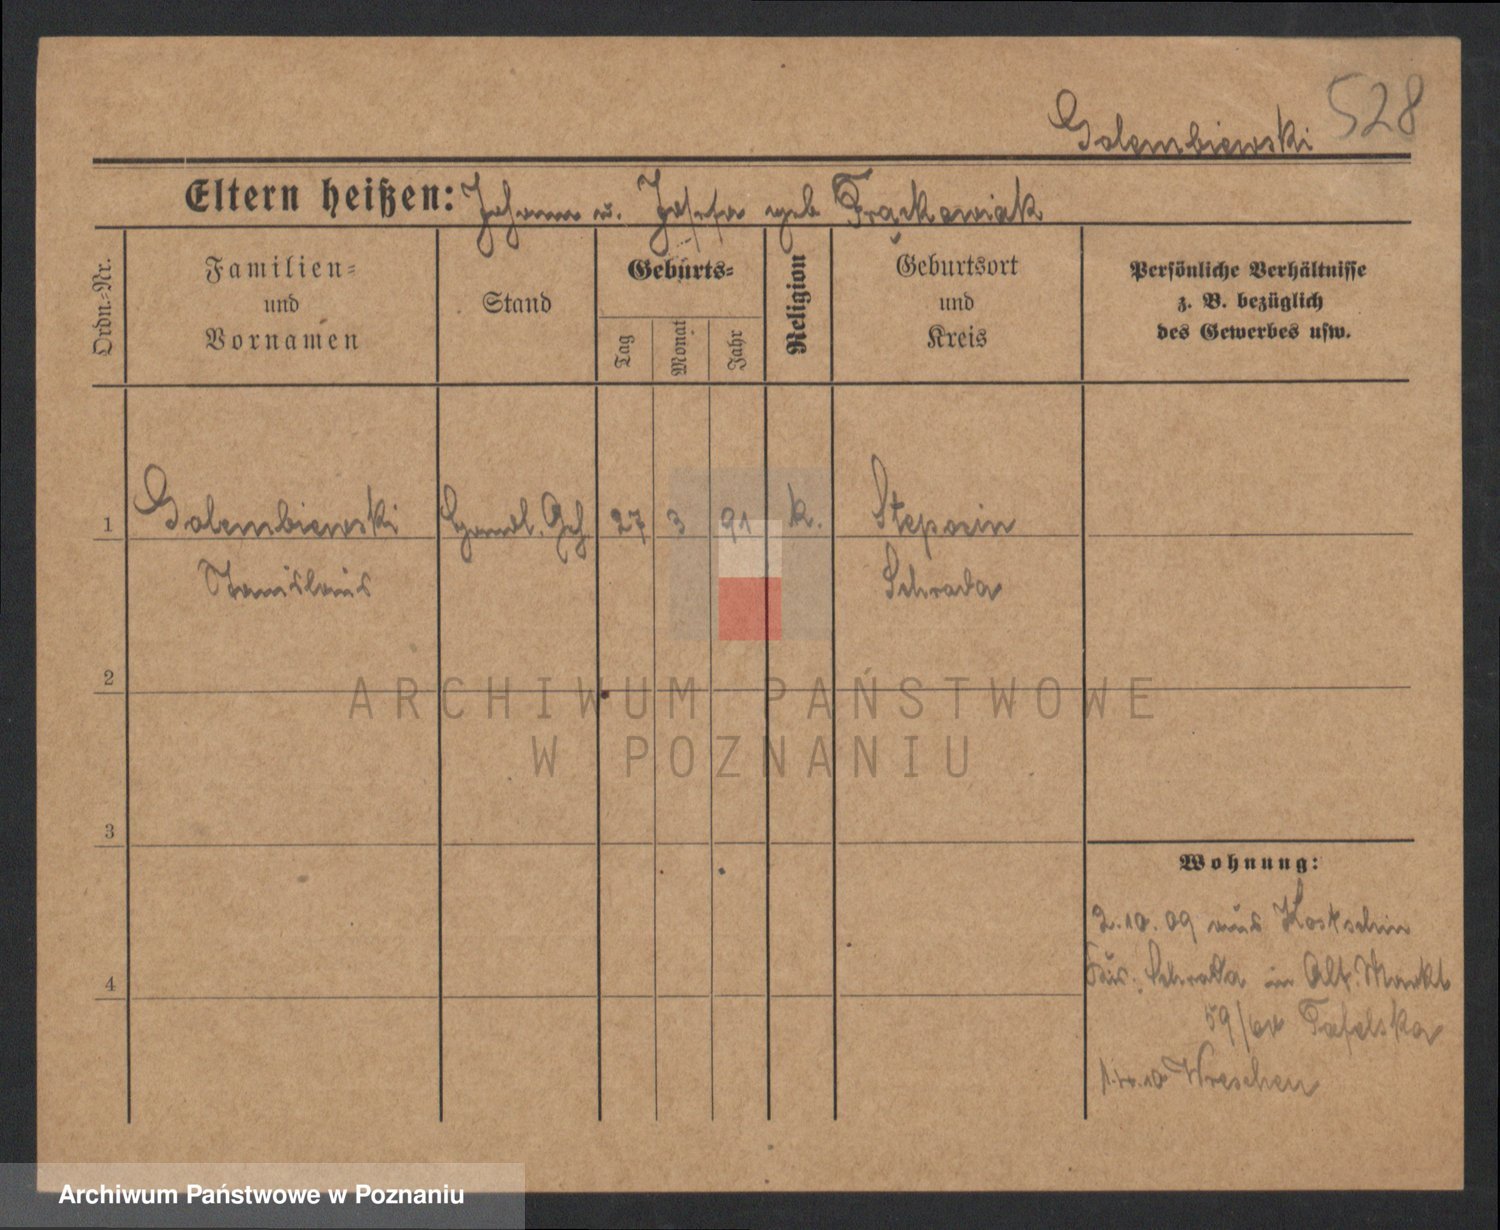 528
Golembiewski
Eltern heißen: Johann u. Josefa geb Frąckowiak
Ordn.-Nr.
Familien-
und
Vornamen
Stand
Geburts-
Tag
Monat
Jahr
Religion
Geburtsort
und
Kreis
Persönliche Verhältnisse
z. B. bezüglich
des Gewerbes usw.
1 Golembiewski Handl. Geh 27 3 91 k.
Stanislaus Schroda
2
3
4
Wohnung:
2.10.09 aus Kostschin
Schroda in Alt. Markt
59/ Tafelska
Wreschen
ARCHIWUM PAŃSTWOWE
W POZNANIU
Archiwum Państwowe w Poznaniu